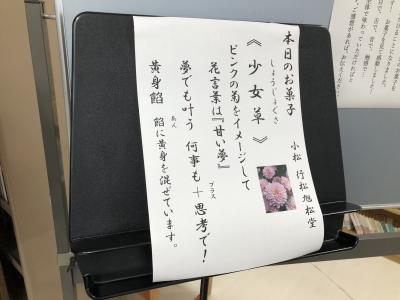 本日のお菓子
しょうじょぐさ
《少女草》
小松 行松旭松堂
ピンクの菊をイメージして
花言葉は『甘い夢』
プラス
夢でも叶う 何事も+思考で!
あん
黄身餡 餡に黄身を混ぜています。